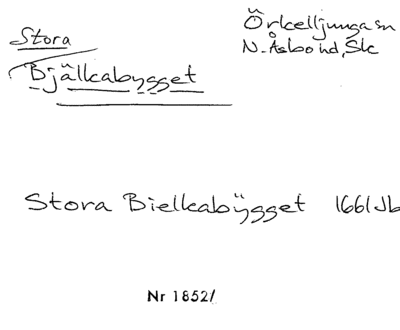 Stora
Bjälkabygget
Örkelljunga sn
N. Åsbo hd, Sk
Stora Bielkabÿgget 1661 Jb
Nr 1852/